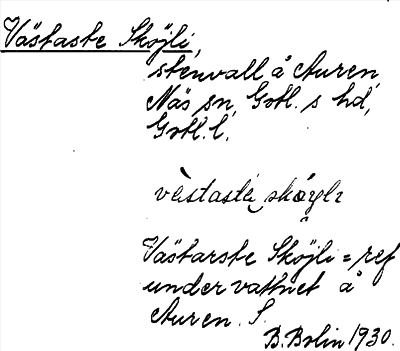 Västaste Sköjli,
stenvall å Auren,
Näs sn, Gotl. s hd,
Gotl. l.
västastę skǫylı
Västarste Sköjli = ref
under vattnet å
Auren. S.
B. Bolin 1930.